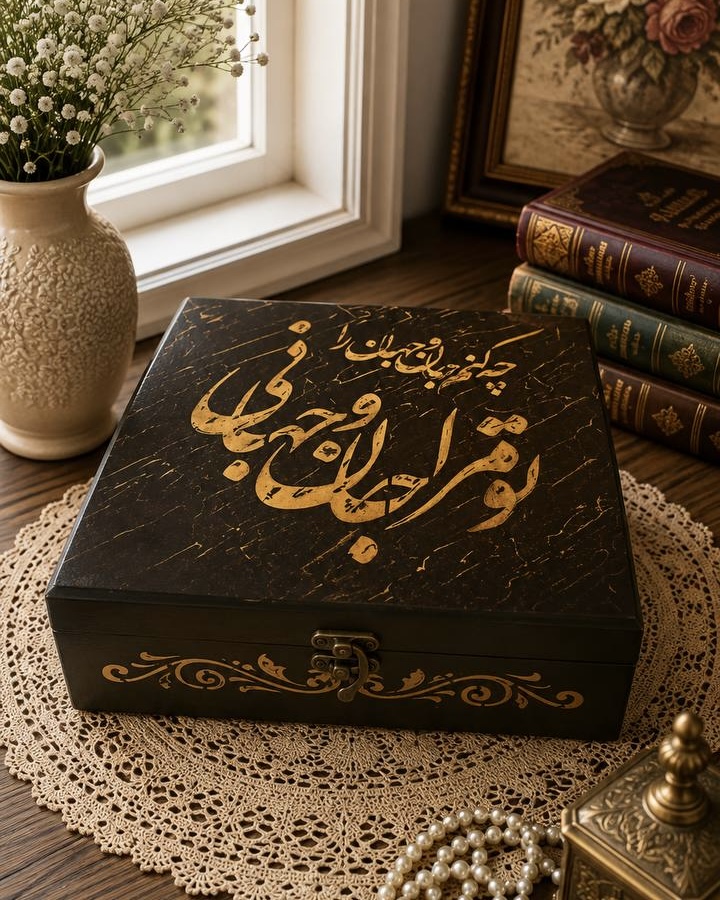 چه کنم جان و جهان را
تو مرا جان و جهانی